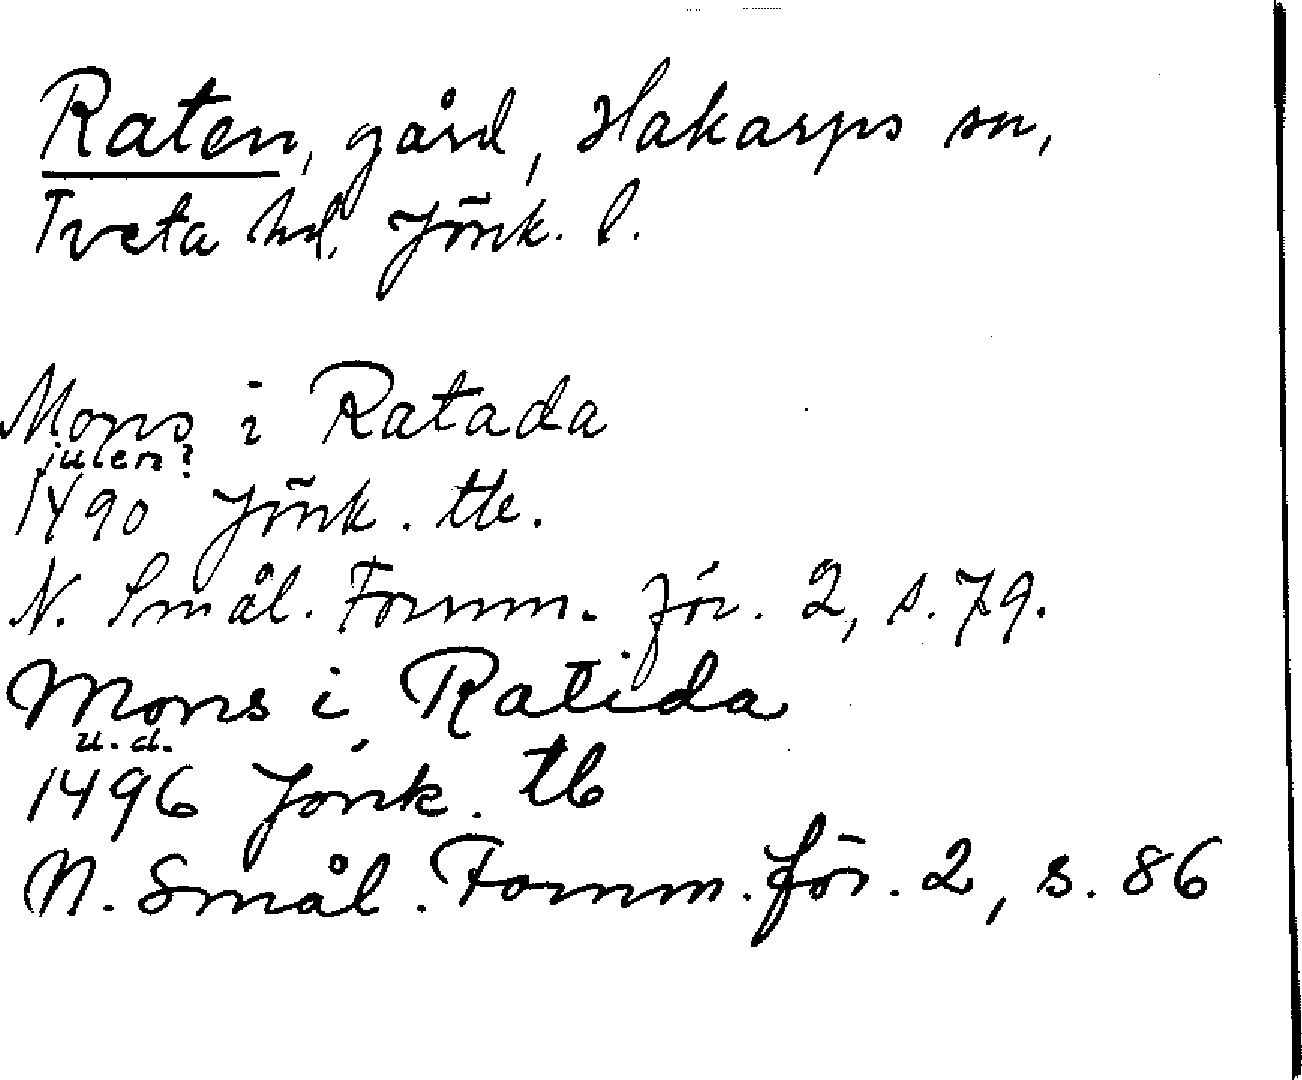 Raten, gård, Hakarps sn,
Tveta hd. Jönk. l.
Mons i Ratada
julen?
1490 Jönk. tb.
N. Smål. Fornm. för. 2, s. 79.
Mons i Ratida
u. d.
1496 Jönk. tb
N. Smål. Fornm. för. 2, s. 86